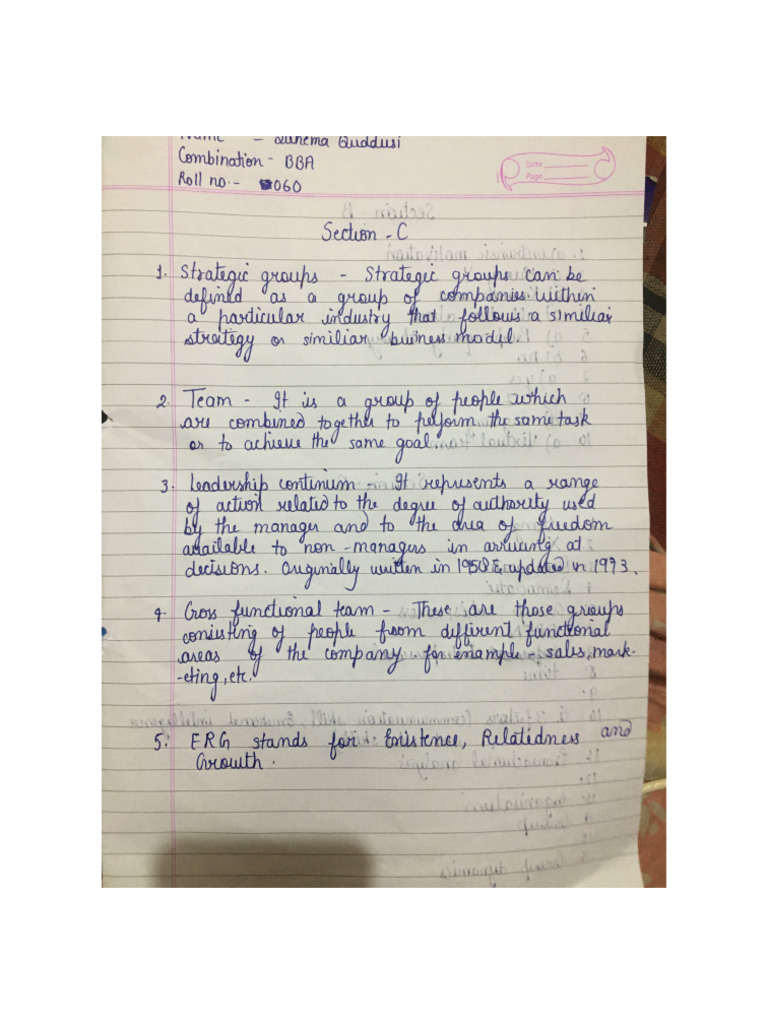 Name - Quddusi
Combination - BBA
Roll no. - 060
Date
Page
Section - C
1. Strategic groups - Strategic groups can be
defined as a group of companies within
a particular industry that follows a similiar
strategy or similiar business model.
2. Team - It is a group of people which
are combined together to perform the same task
or to achieve the same goal.
3. Leadership continium - It represents a range
of action related to the degree of authority used
by the manager and to the area of freedom
available to non-managers in arriving at
decisions. Originally written in 1958 & updated in 1973.
4. Cross functional team - These are those groups
consisting of people from diffirent functional
areas of the company for enample - sales, mark-
-eting, etc.
5. ERG stands for Enistence, Relatidness and
Growth.